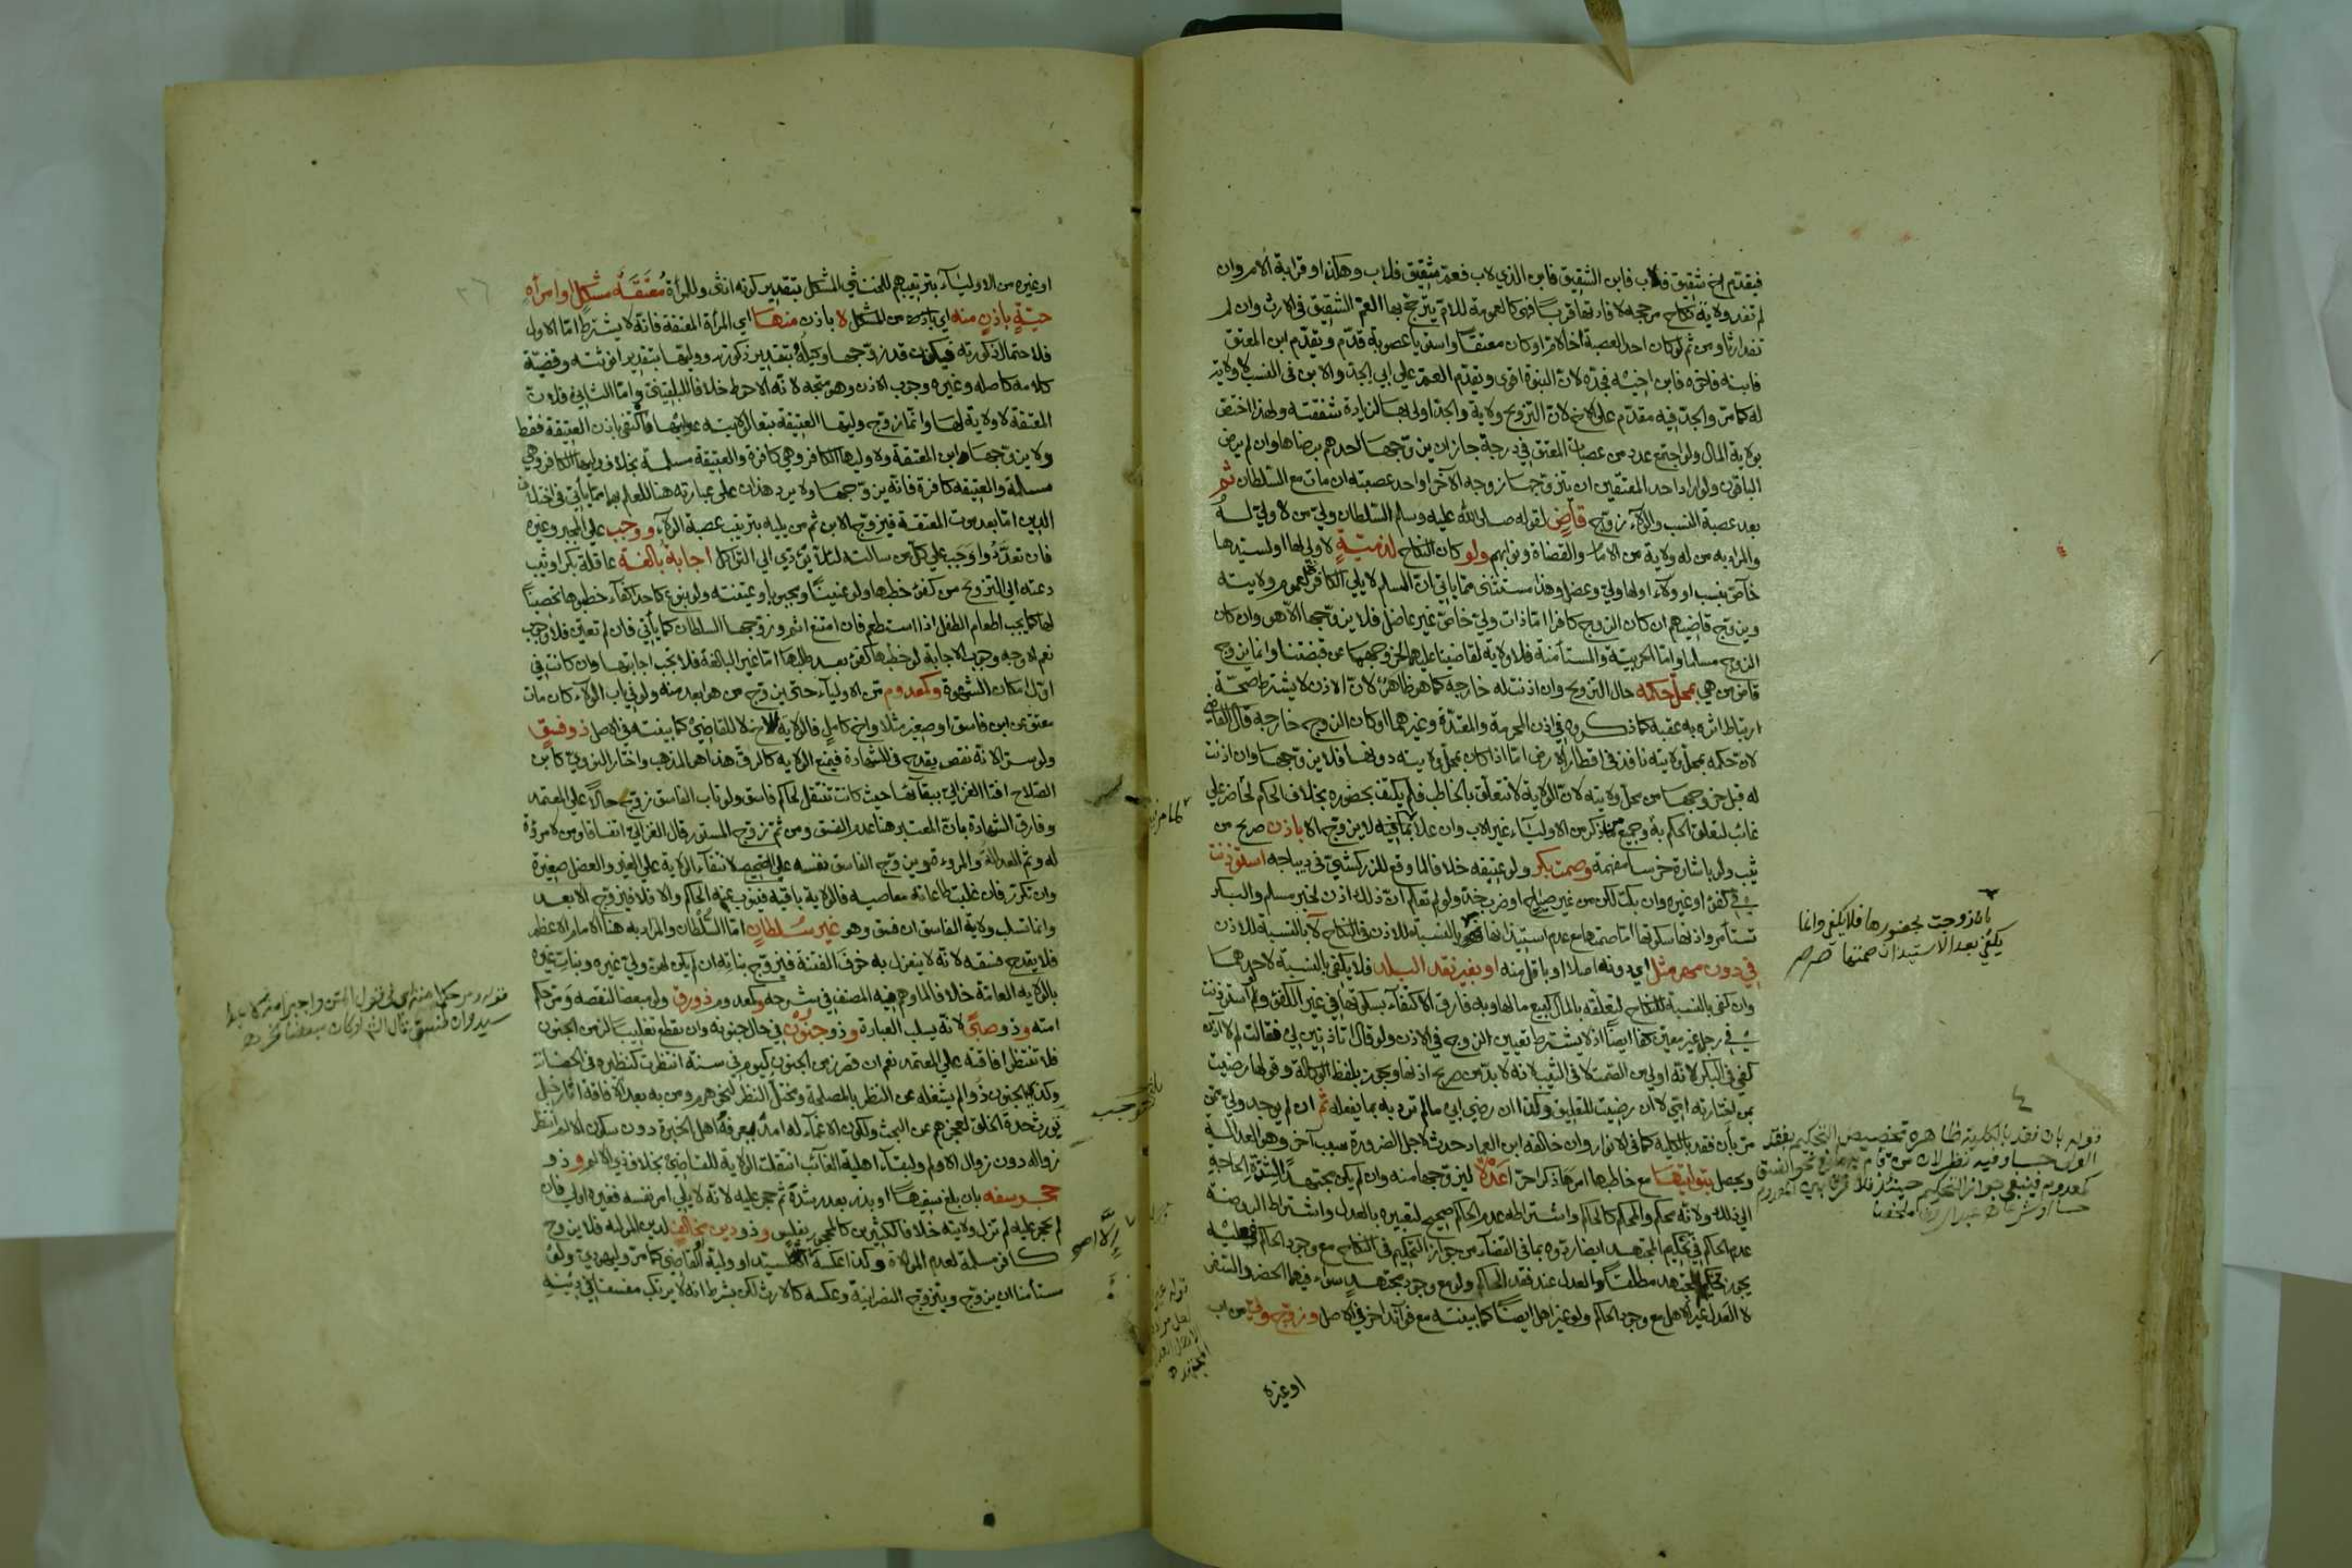 فيقدم اخ شقيق فلاب فابن الشقيق فابن الذي لاب فعم شقيق فلاب وهكذا وقرابة الام وان
لم تفد ولاية نكاح مرجحة لافادتها قربا فهي كالعمومة للام يترجح بها العم الشقيق في الارث وان لم
تفد ارثا ومن ثم لو كان احد العصبة اخا لام او كان معتقا واستويا عصوبة قدم ويقدم ابن المعتق
فابنه فاخوه فابن اخيه فجده لان البنوة اقوى ويقدم العم على ابي الجد والابن في النسب لا ولاية
له كما مر والجد فيه مقدم على الاخ لان التزويج ولاية والجد اولى بها لزيادة شفقته ولهذا اختص
بولاية المال ولو اجتمع عدد من عصبات المعتق في درجة جاز ان يزوجها احدهم برضاها وان لم يرض
الباقون ولو اراد احد المعتقين ان يتزوجها زوجه الآخر او احد عصبته ان مات مع السلطان ثم
بعد عصبة النسب والولاء زوج قاض لقوله صلى الله عليه وسلم السلطان ولي من لا ولي له
والمراد به من له ولاية من الامام والقضاة ونوابهم ولو كان النكاح لذمية لا ولي لها او لسيدها
خاص بنسب او ولاء او لها ولي وعضل وهذا مستثنى مما ياتي ان المسلم لا يلي الكافر لعموم ولايته
ويزوج قاضيهم ان كان الزوج كافرا اما ذات ولي خاص غير عاضل فلا يزوجها الا هو وان كان
الزوج مسلما واما الحربية والمستأمنة فلا ولاية لقاضينا عليهما لخروجهما عن قبضتنا وانما يزوج
قاض من هي بمحل حكمه حال التزويج وان اذنت له خارجه كما هو ظاهر لان الاذن لا يشترط صحة
ارتباط اثره به عقبه كما ذكروه في اذن المحرمة والمعتدة وغيرهما او كان الزوج خارجه قال القاضي
لان حكمه بمحل ولايته نافذ في اقطار الارض اما اذا كان بمحل ولايته دونها فلا يزوجها وان اذنت
له قبل خروجها من محل ولايته لان الولاية لا تتعلق بالخاطب فلم يكتف بحضوره بخلاف الحكم لحاضر على
غائب لتعلق الحكم به وجميع من ذكر من الاولياء غير الاب وان علا يزوج الا باذن صريح من
ثيب ولو باشارة خرسا مفهمة وصمت بكر ولو عتيقة خلافا لما وقع للزركشي في ديباجه استوذنت
في كفئ او غيره وان بكت لكن من غير صياح او ضرب خد ولو لم تعلم ان ذلك اذن لخبر مسلم والبكر
تستأمر واذنها سكوتها اما صمتها مع عدم استيذانها بالنسبة للاذن في النكاح لا بالنسبة للاذن
في دون مهر مثل اي دونه اصلا او باقل منه او بغير نقد البلد فلا يكفي بالنسبة لاحدهما
وان كفى بالنسبة للنكاح لتعلقه بالمال كبيع مالها وبه فارق الاكتفاء بسكوتها في غير الكفئ ولو استوذنت
في رجل غير معين كفى ايضا اذ لا يشترط تعيين الزوج في الاذن ولو قال اتاذنين لي فقالت لم لا آذن
كفى في البكر لانه اولى من الصمت لا في الثيب لانه لا بد من صريح اذنها ويجوز بلفظ الوكالة وقولها رضيت
بمن اختارته امي لا ان رضيت للتعليق وكذا ان رضي ابي ما لم ترد به بما يفعله ثم ان لم يوجد ولي ممن
مر بان فقد بالكلية كما في الانوار وان خالفه ابن العماد حدث لاجل الضرورة سبب آخر وهو العدالة
ويحصل بتوليتها مع خاطبها امرها ذكرا حرا عدلا ليزوجها منه وان لم يكن مجتهدا لشدة الحاجة
الى ذلك ولانه محكم والمحكم كالحاكم واشتراطه عدم الحاكم صحيح لتعبيره بالعدل واشتراط الروضة
عدم الحاكم في تحكيم المجتهد ايضا ردوه بما في القضاء من جواز التحكيم في النكاح مع وجود الحاكم
يجوز تحكيم المجتهد مطلقا والعدل عند فقد الحاكم ولو مع وجود مجتهد سواء فيهما الحضر والسفر
لا العدل غير الاهل مع وجود الحاكم ولو غير اهل ايضا كما بينته مع فوائد اخر في الاصل وزوج ولي من اب
اوغيره
بان زوجت بحضورها فلا يكفي وانما
يكفي بعد الاستيذان صمتها
٤
قوله بان فقد بالكلية ظاهره تخصيص التحكيم بفقد
الولي حسا وفيه نظر لان من قام به مانع نحو الفسق
كمعدوم فينبغي جواز التحكيم حينئذ فلا فرق بين المعدوم
او غيره من الاولياء بترتيبهم للخنثى المشكل بتقدير كونه انثى وللمرأة معتقة مشكل او امرأة
حية باذن منه اي باذن من المشكل لا باذن منها اي المرأة المعتقة فانه لا يشترط اما الاول
فلاحتمال ذكورته فيكون قد زوجها وكيله بتقدير ذكورته ووليها بتقدير انوثته وقضية
كلامه كاصله وغيره وجوب الاذن وهو متجه لانه الاحوط خلافا للبلقيني واما الثاني فلان
المعتقة لا ولاية لها وانما زوج وليها العتيقة تبعا لولايته عليها فاكتفي باذن العتيقة فقط
ولا يزوجها ابن المعتقة ولا وليها الكافر وهي كافرة والعتيقة مسلمة بخلاف وليها الكافر وهي
مسلمة والعتيقة كافرة فانه يزوجها ولا يرد هذان على عبارته هنا للعلم بهما مما يأتي في اختلاف
الدين اما بعد موت المعتقة فيزوج الابن ثم من يليه بترتيب عصبة الولاء ووجب على المجبر وغيره
فان تعددوا وجب على كل من سألته لئلا يؤدي الى التواكل اجابة بالغة عاقلة بكر او ثيب
دعته الى التزويج من كفئ خطبها ولو عنينا ومجبوبا وعينته ولو بنوع كاحد اكفاء خطبوها تحصينا
لها كما يجب اطعام الطفل اذا استطعم فان امتنع اثم وزوجها السلطان كما يأتي فان لم تعين فلا وجوب
نعم الاوجه وجوب الاجابة لو خطبها كفئ بعد طلبها اما غير البالغة فلا تجب اجابتها وان كانت في
اول امكان الشهوة وكمعدوم من الاولياء حتى يزوج من هو ابعد منه ولو في باب الولاء كان مات
معتق عن ابن فاسق او صغير مثلا واخ كامل فالولاية للاخ لا للقاضي كما بينته في الاصل ذو فسق
ولو سرا لانه نقص يقدح في الشهادة فيمنع الولاية كالرق هذا هو المذهب واختار النووي كابن
الصلاح افتا الغزالي ببقائها حيث كانت تنتقل لحاكم فاسق ولو تاب الفاسق زوج حالا على المعتمد
وفارق الشهادة بان المعتبر هنا عدم الفسق ومن ثم زوج المستور قال الغزالي اتفاقا ومن لا مروءة
له وثم العدالة والمروءة ويزوج الفاسق نفسه على الصحيح لانتفاء الولاية على الغير والعضل صغيرة
وان تكرر فان غلبت طاعاته معاصيه فالولاية باقية فينوب عنه الحاكم والا فلا فيزوج الابعد
وانما تسلب ولاية الفاسق ان فسق وهو غير سلطان اما السلطان والمراد به هنا الامام الاعظم
فلا يقدح فسقه لانه لا ينعزل به خوف الفتنة فيزوج بناته ان لم يكن لهن ولي غيره وبنات غيره
بالولاية العامة خلافا لما وهم فيه المصنف في شرحه وكمعدوم ذو رق ولو مبعضا لنقصه ومر حكم
امته وذو صبى لانه يسلب العبارة وذو جنون في حال جنونه وان يقطع تغليبا لزمن الجنون
فلا تنتظر افاقته على المعتمد نعم ان قصر زمن الجنون كيوم في سنة انتظرت كنظيره في الحضانة
وكذي الجنون ذو الم يشغله عن النظر بالمصلحة ومختل النظر لنحو هرم ومن به بعد الافاقة آثار خبل
يورث حدة الخلق لعجزهم عن البحث ولكون الاغماء له امد يعرفه اهل الخبرة دون سكون الالم انتظر
زواله دون زوال الالم ولبقاء اهلية الغائب انتقلت الولاية للقاضي بخلاف ذي الالم وذو
حجر سفه بان بلغ سفيها او بذر بعد رشده ثم حجر عليه لانه لا يلي امر نفسه فغيره اولى فان
لم يحجر عليه لم تزل ولايته خلافا لكثيرين كالمحجور بفليس وذو دين مخالف لدين المولية فلا يزوج
كافر مسلمة لعدم الموالاة وكذا عكسه الا لسيد او ولية القاضي كما مر ويلي يهودي ولو
مستأمنا ان يزوج ويتزوج النصرانية وعكسه كالارث لكن بشرط انه لا يرتكب مفسقا في دينه